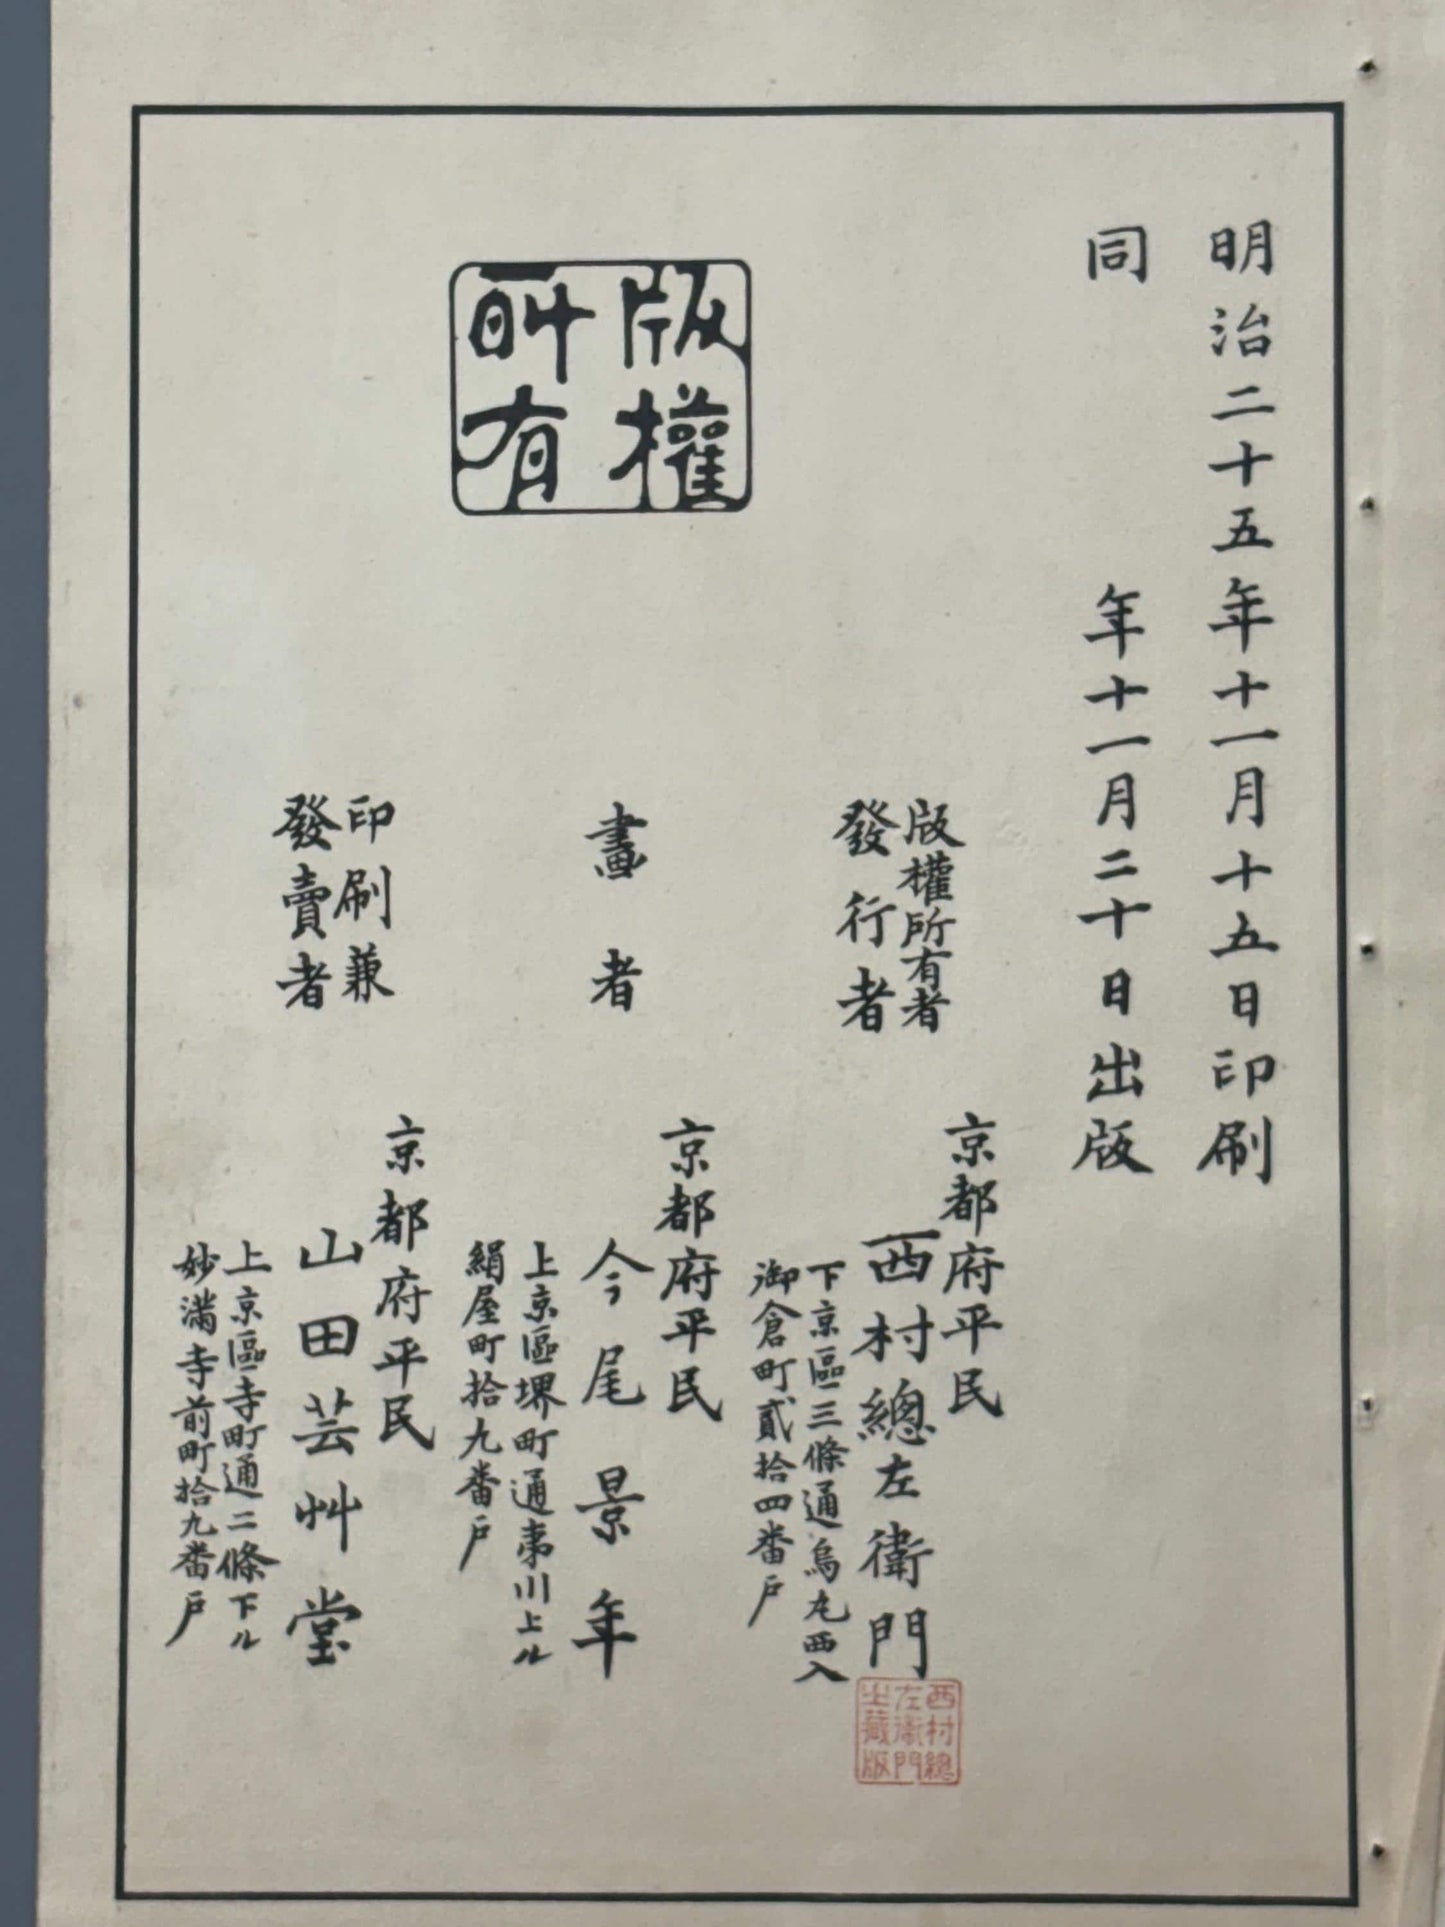 明治二十五年十一月十五日印刷
同年十一月二十日出版
版權
所有
版權所有者
發行者
京都府平民
西村總左衛門
下京區三條通烏丸西入
御倉町貳拾四番戸
西村總
左衛門
之蔵版
畫者
京都府平民
今尾景年
上京區堺町通夷川上ル
絹屋町拾九番戸
印刷兼
發賣者
京都府平民
山田芸艸堂
上京區寺町通二條下ル
妙滿寺前町拾九番戸